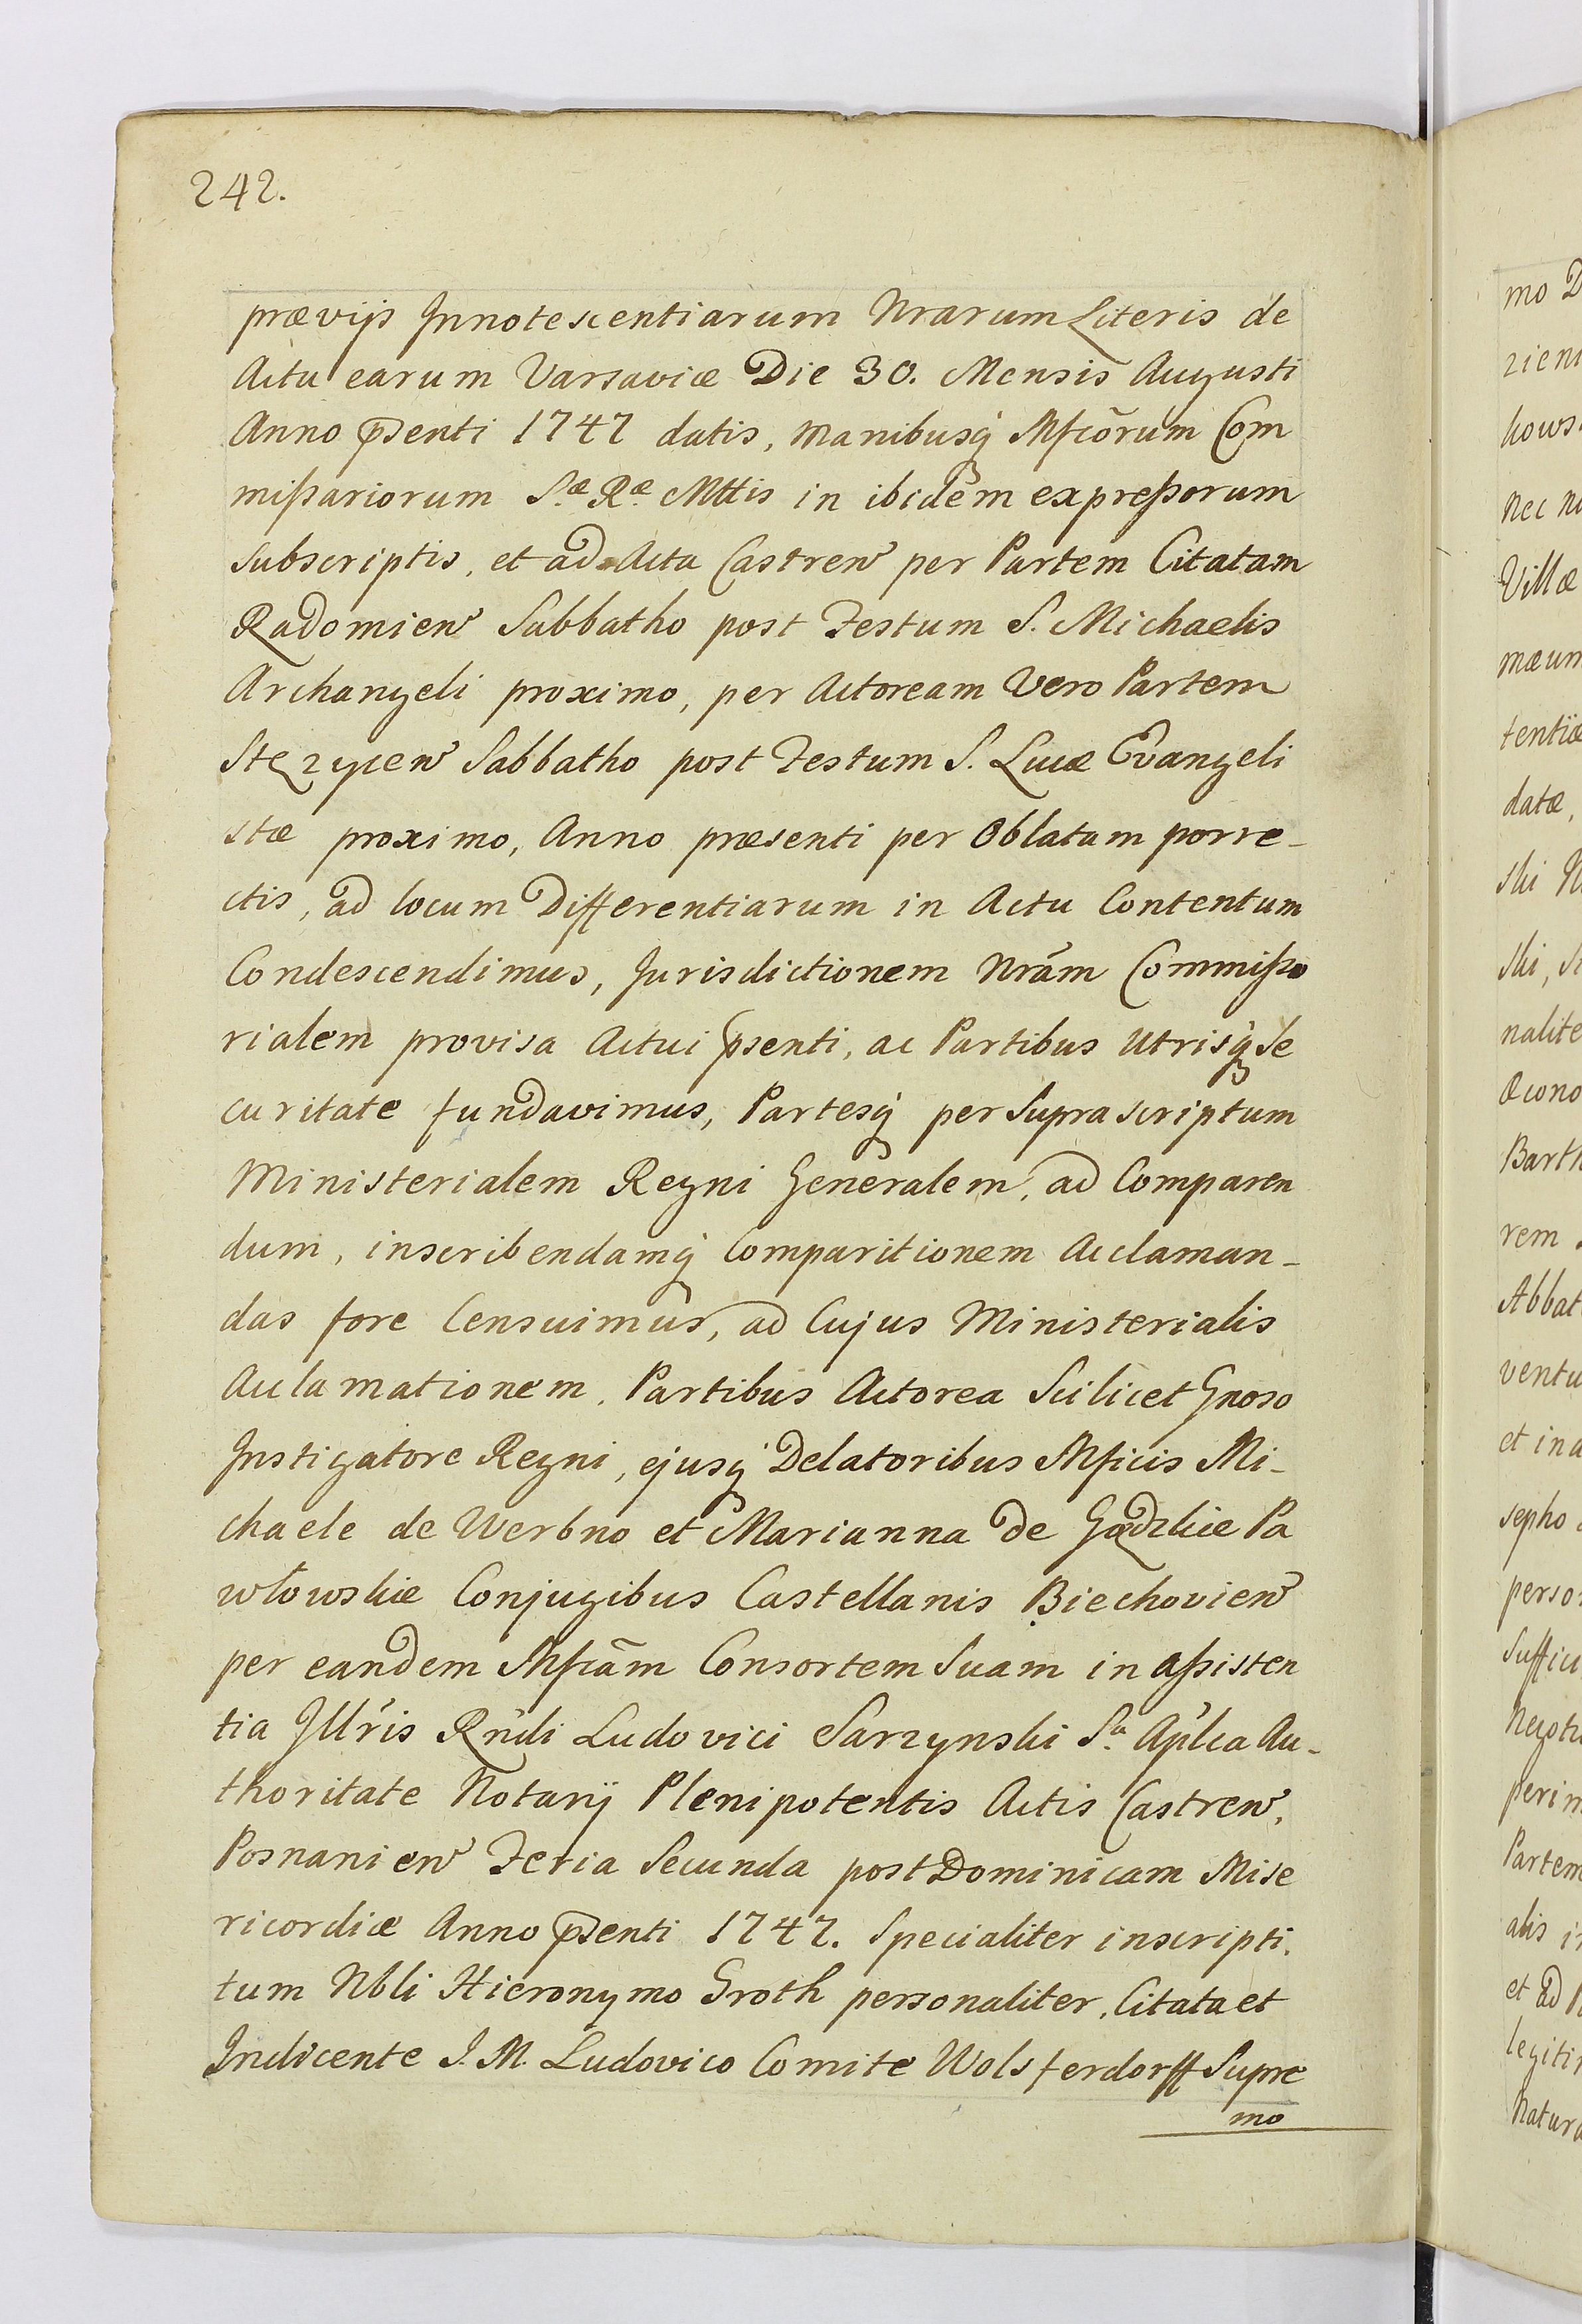 242.
prævijs Innotescentiarum Nrarum Literis de
Actu earum Varsaviæ Die 30. Mensis Augusti
Anno p̄senti 1747 datis, manibusq́ Mficõrum Com
mißariorum S.æ R.æ Mttis in ibidem expreßorum
subscriptis, et ad Acta Castren̄ per Partem Citatam
Radomien̄ Sabbatho post Festum S. Michaelis
Archangeli proximo, per Actoream Vero Partem
Stęzycen̄ Sabbatho post Festum S. Lucæ Evangeli
stæ proximo, Anno præsenti per Oblatam porre-
ctis, ad locum Differentiarum in Actu Contentum
Condescendimus, Jurisdictionem Nrãm Commißo
rialem provisa Actui p̄senti, ac Partibus Utrisq́ Se
curitate fundavimus, Partesq́ per Suprascriptum
Ministerialem Regni Generalem, ad Comparen
dum, inscribendamq́ Comparitionem Acclaman-
das fore Censuimus, ad Cujus Ministerialis
Acclamationem. Partibus Actorea Scilicet Gnoso
Instigatore Regni, ejusq́ Delatoribus Mficis Mi-
chaele de Werbno et Marianna de Gądzkie Pa
włowskie Conjugibus Castellanis Biechovien̄
per eandem Mficãm Consortem Suam in aßisten
tia Illr̃is Rñdi Ludovici Sarzynski S.a Aplica Au-
thoritate Notarij Plenipotentis Actis Castren̄.
Posnanien̄ Feria Secunda post Dominicam Mise
ricordiæ Anno p̄senti 1747. Specialiter inscripti.
tum Nbli Hieronymo Groth personaliter, Citata et
Indicente I. M. Ludovico Comite Wolsferdorff Supre
mo
mo D
zieni
kows
nec n
Villæ
mæum
tentiæ
datæ,
ski N
ski, S
nalite
Œcono
Barth
rem
Abbat
ventu
et ina
sepho
perso
Suffici
Negoti
perim
Partem
alis i
et ad P
legiti
Natura